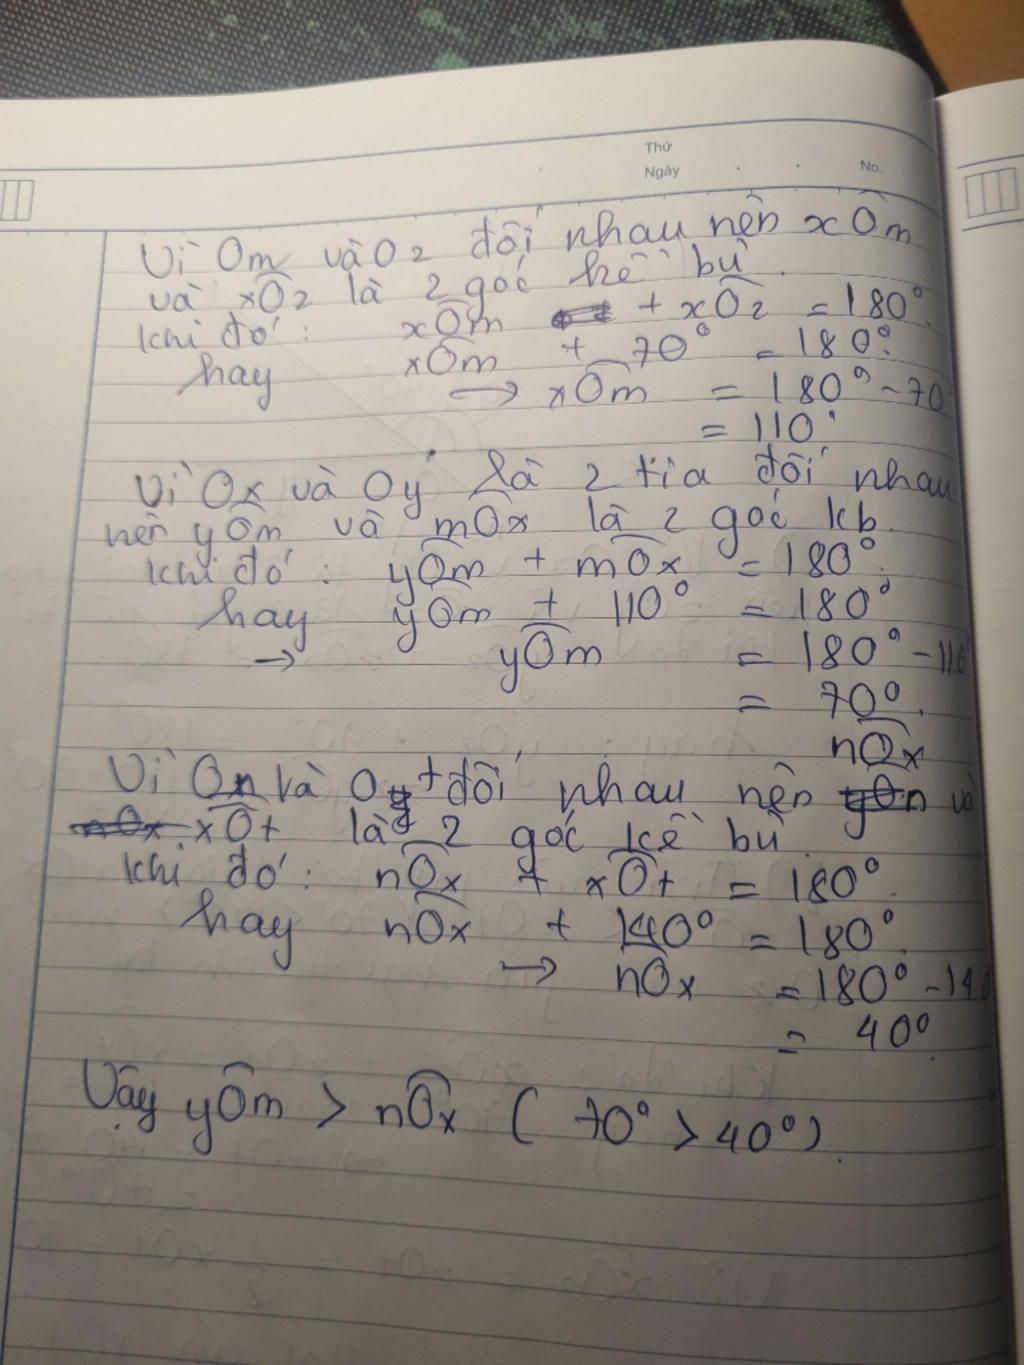 Thứ
Ngày . . No.
Vì Om và Oz đối nhau nên xÔm
và xÔz là 2 góc kề bù.
khi đó: xÔm + xÔz = 180°.
hay xÔm + 70° = 180°.
→ xÔm = 180° - 70
= 110°
Vì Ox và Oy là 2 tia đối nhau
nên yÔm và mÔx là 2 góc kb.
khi đó: yÔm + mÔx = 180°.
hay yÔm + 110° = 180°
→ yÔm = 180° - 110
= 70°.
nÔx
Vì On và Ot đối nhau nên yÔn và
nÔx xÔt là 2 góc kề bù.
khi đó: nÔx + xÔt = 180°.
hay nÔx + 140° = 180°.
→ nÔx = 180° - 140
= 40°.
Vậy yÔm > nÔx ( 70° > 40° ).